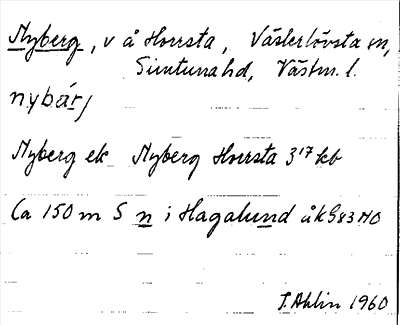 Nyberg, v å Horrsta, Västerlövsta sn,
Simtuna hd, Västm. l.
nybárj
Nyberg ek Nyberg Horrsta 3¹⁷ kb
Ca 150 m S n i Hagalund åk 983 NO
I. Ahlin 1960